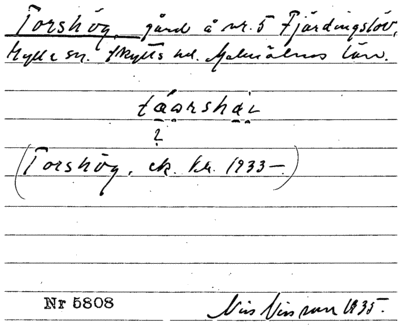 Torshög, gård å nr. 5 Fjärdingslöv,
Hylle sn. Skytts hd. Malmöhus län.
tåorshåi
?
(Torshög, ek. kr. 1933–)
Nr 5808
Nils Nilsson 1935.